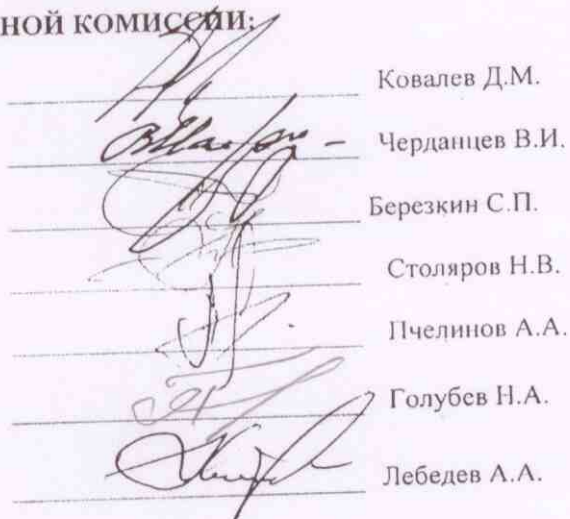 НОЙ КОМИССИИ:
Ковалев Д.М.
Черданцев В.И.
Березкин С.П.
Столяров Н.В.
Пчелинов А.А.
Голубев Н.А.
Лебедев А.А.